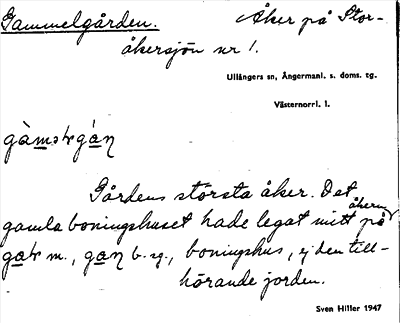 Gammelgården. Åker på Stor-
åkersjön nr 1.
Ullångers sn, Ångermanl. s. doms. tg.
Västernorrl. l.
gàməɫgán
Gårdens största åker. Det
gamla boningshuset hade legat mitt på åkern
gaɫ m., gan b. sg., boningshus, ej den till-
hörande jorden.
Sven Hiller 1947